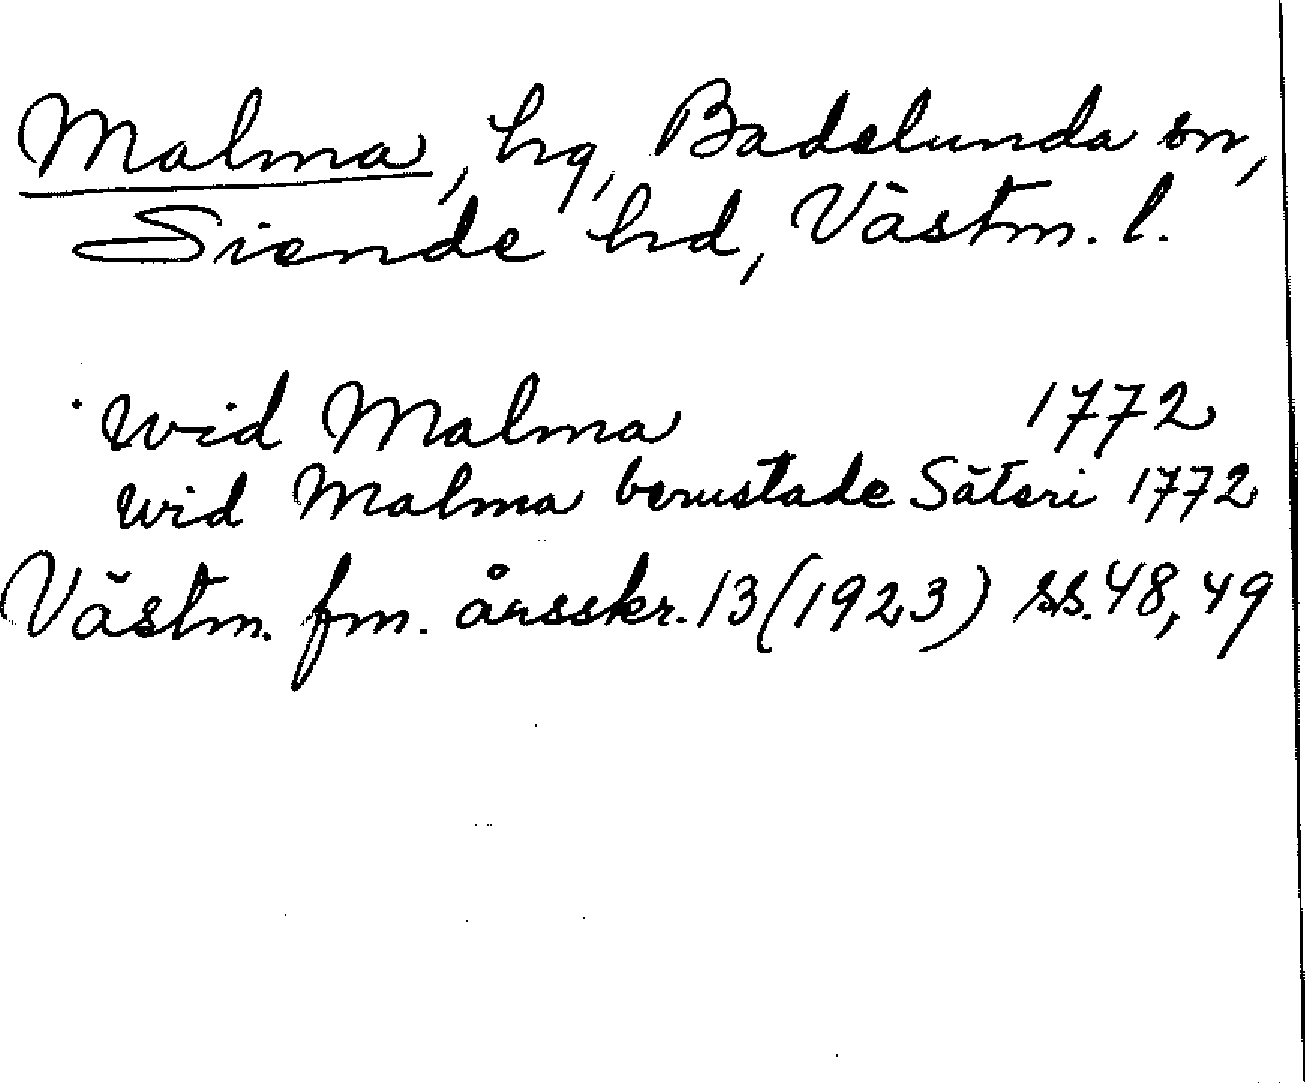 Malma, hg, Badelunda sn,
Siende hd, Västm. l.
wid Malma 1772
wid Malma berustade Säteri 1772
Västm. fm. årsskr. 13 (1923) ss. 48, 49